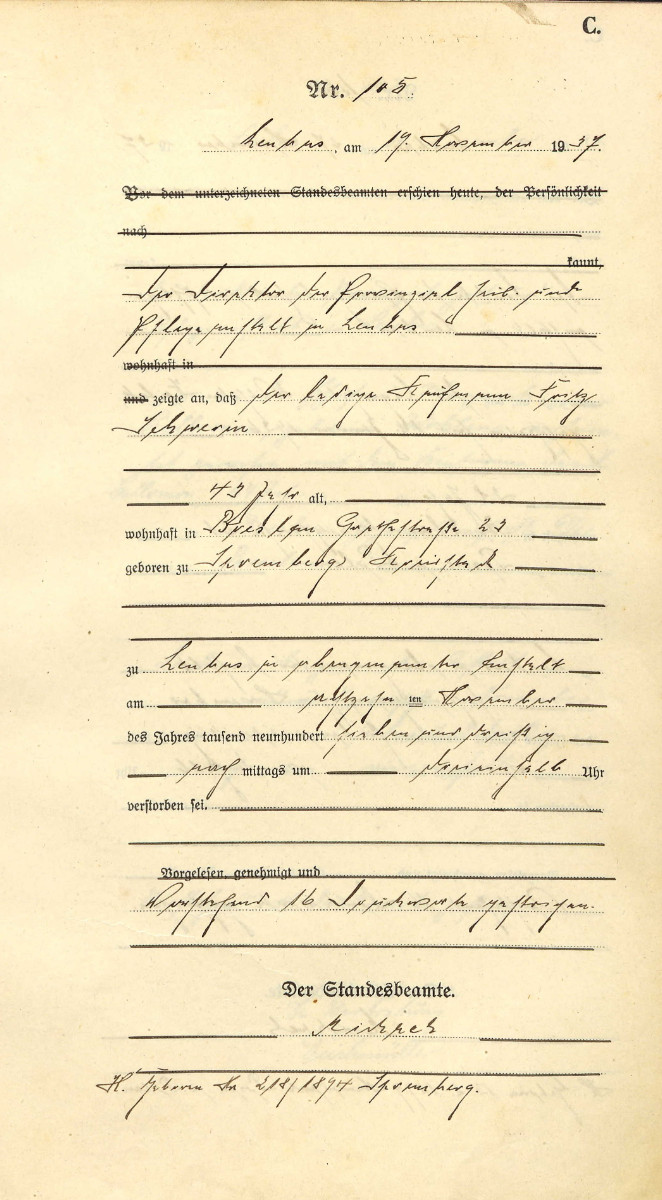 C.
Nr. 105.
Leubus, am 19. November 1937.
Vor dem unterzeichneten Standesbeamten erschien heute, der Persönlichkeit
nach
kannt,
Der Direktor der Provinzial Heil- und
Pflegeanstalt in Leubus
wohnhaft in
und zeigte an, daß der ledige Kaufmann Fritz
Schwerin
43 Jahr alt,
wohnhaft in Breslau Goethestraße 23
geboren zu Spremberg Kreisstadt
zu Leubus in obengenannter Anstalt
am achtzehn ten November
des Jahres tausend neunhundert sieben und dreißig
nach mittags um dreieinhalb Uhr
verstorben sei.
Vorgelesen, genehmigt und
Vorstehend 16 Druckworte gestrichen.
Der Standesbeamte.
H. Geboren Nr 218/1894 Spremberg.